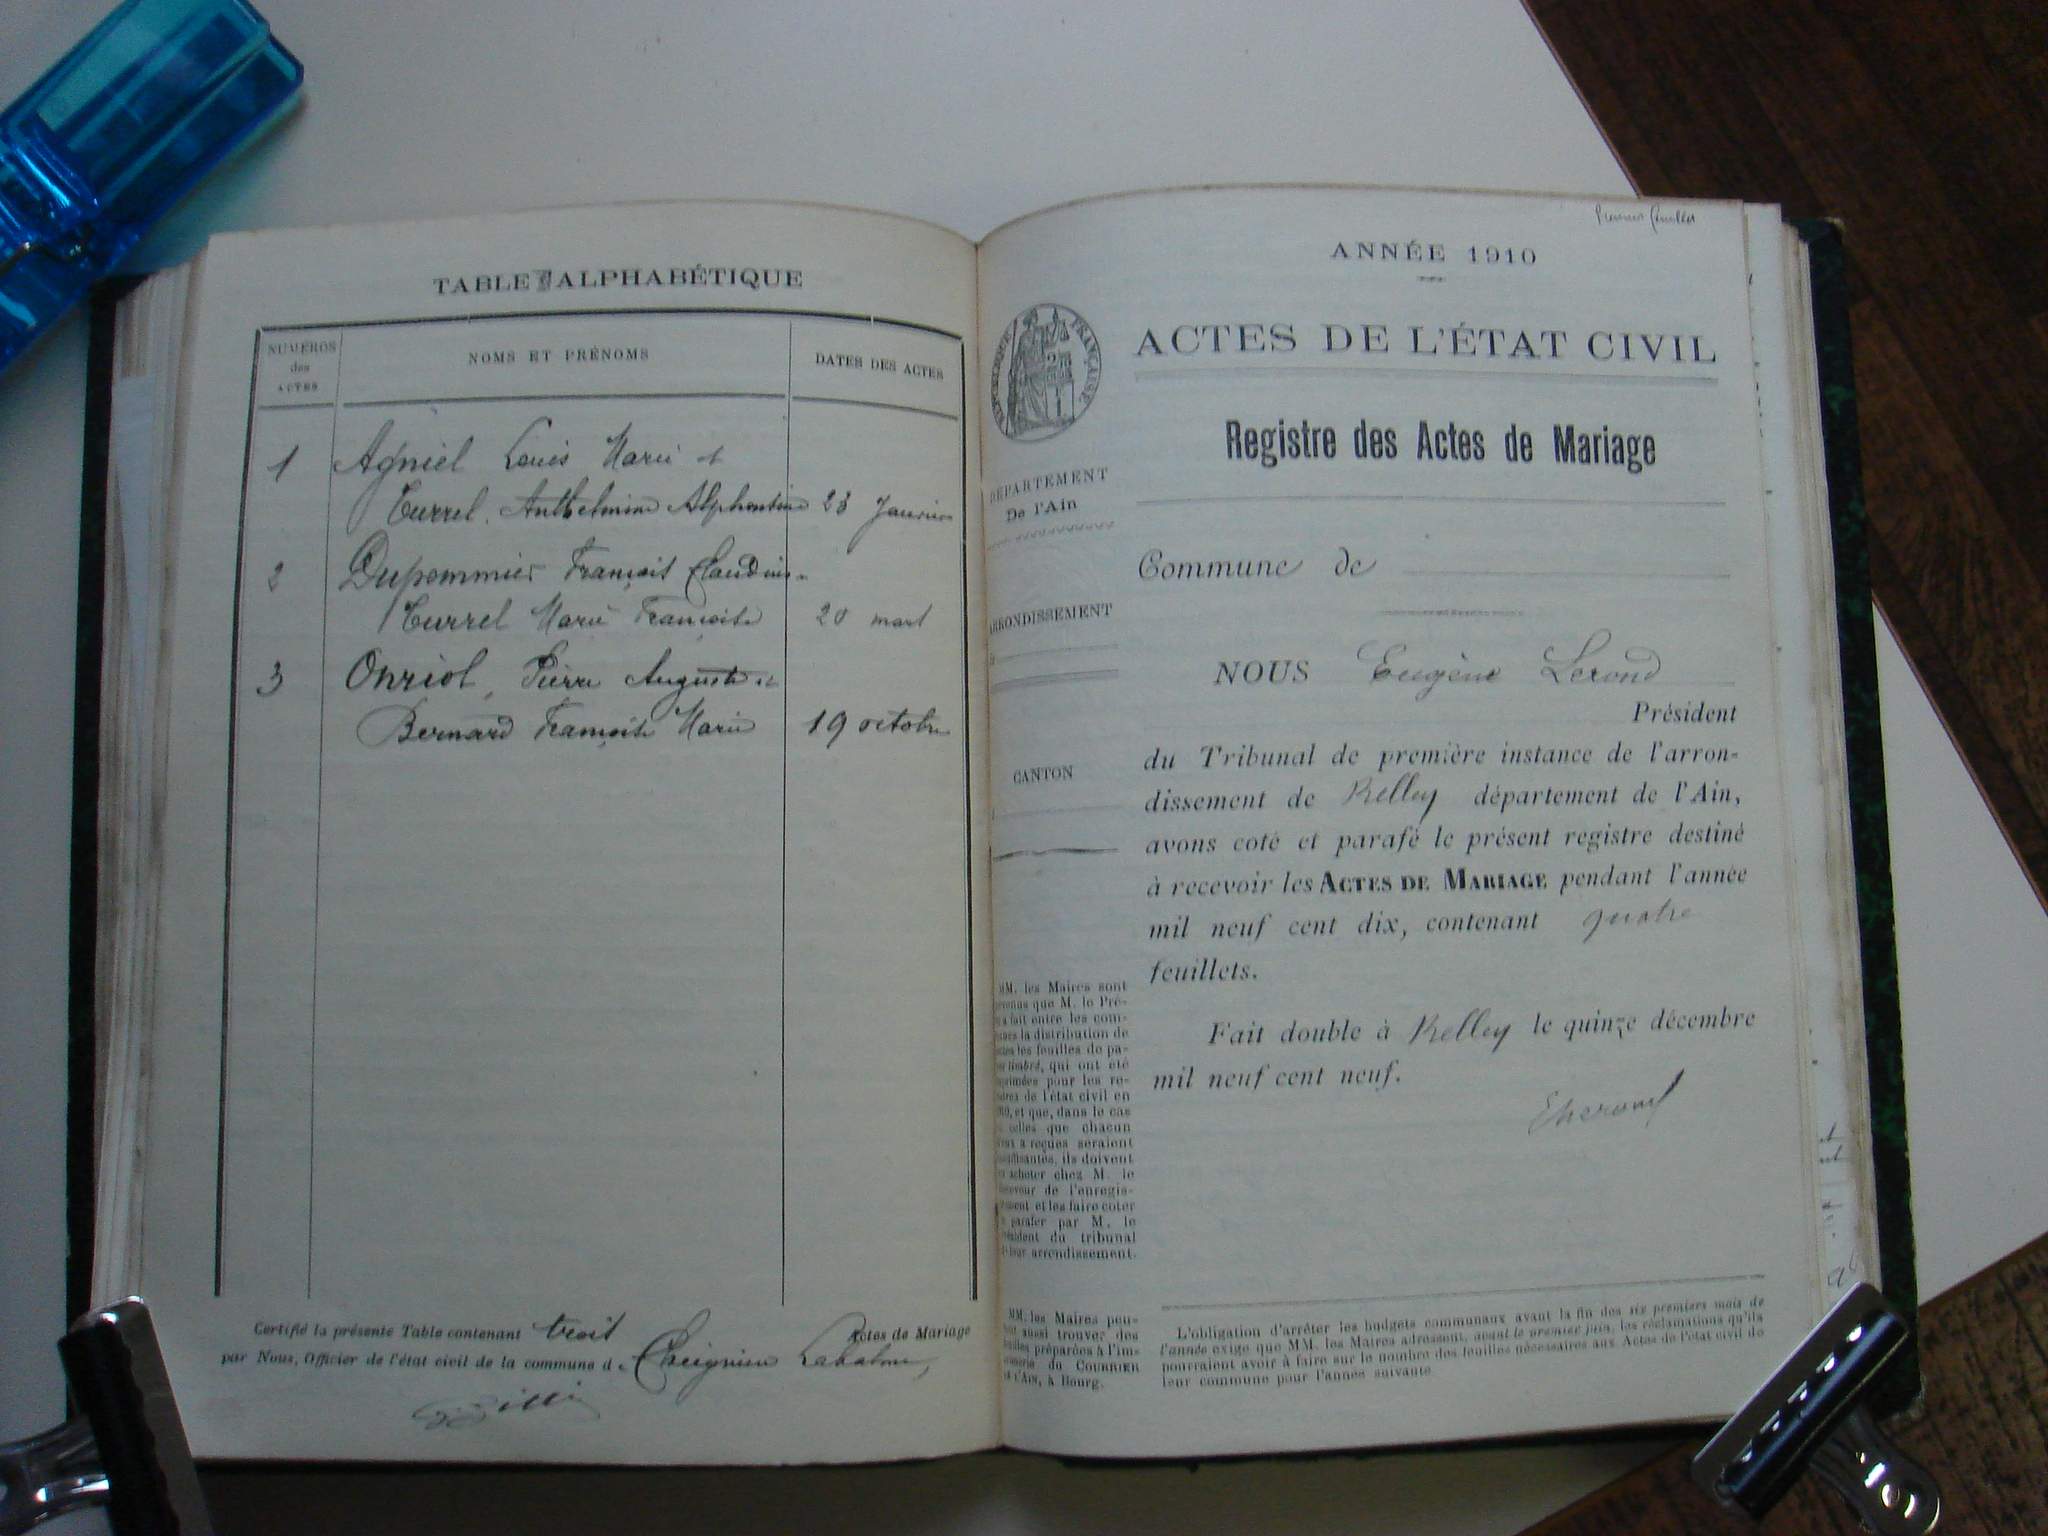 TABLE ALPHABÉTIQUE
NUMÉROS
des
ACTES
NOMS ET PRÉNOMS
DATES DES ACTES
1 Agniel Louis Marie et
Turrel Anthelmine Alphonsine 23 Janvier
2 Dupommier François Claudius
Turrel Marie Françoise 20 mars
3 Onriol, Pierre Auguste et
Bernard Françoise Marie 19 octobre
Certifié la présente Table contenant trois Actes de Mariage
par Nous, Officier de l'état civil de la commune de Cheignieu Labalme,
Premier feuillet
ANNÉE 1910
RÉPUBLIQUE FRANÇAISE
ACTES DE L'ÉTAT CIVIL
Registre des Actes de Mariage
DÉPARTEMENT
De l'Ain
Commune de
ARRONDISSEMENT
NOUS Eugène Lerond
Président
CANTON
du Tribunal de première instance de l'arron-
dissement de Belley département de l'Ain,
avons coté et parafé le présent registre destiné
à recevoir les ACTES DE MARIAGE pendant l'année
mil neuf cent dix, contenant quatre
feuillets.
Fait double à Belley le quinze décembre
mil neuf cent neuf.
ELerond
MM. les Maires sont
que M. le Pré-
fait entre les com-
la distribution de
les feuilles de pa-
timbré, qui ont été
pour les re-
de l'état civil en
et que, dans le cas
celles que chacun
reçues seraient
ils doivent
acheter chez M. le
de l'enregis-
et les faire coter
parafer par M. le
du tribunal
arrondissement.
MM. les Maires peu-
aussi trouver des
préparées à l'im-
du COURRIER
l'Ain, à Bourg.
L'obligation d'arrêter les budgets communaux avant la fin des six premiers mois de
l'année exige que MM. les Maires adressent, avant le premier juin, les réclamations qu'ils
pourraient avoir à faire sur le nombre des feuilles nécessaires aux Actes de l'état civil de
leur commune pour l'année suivante.